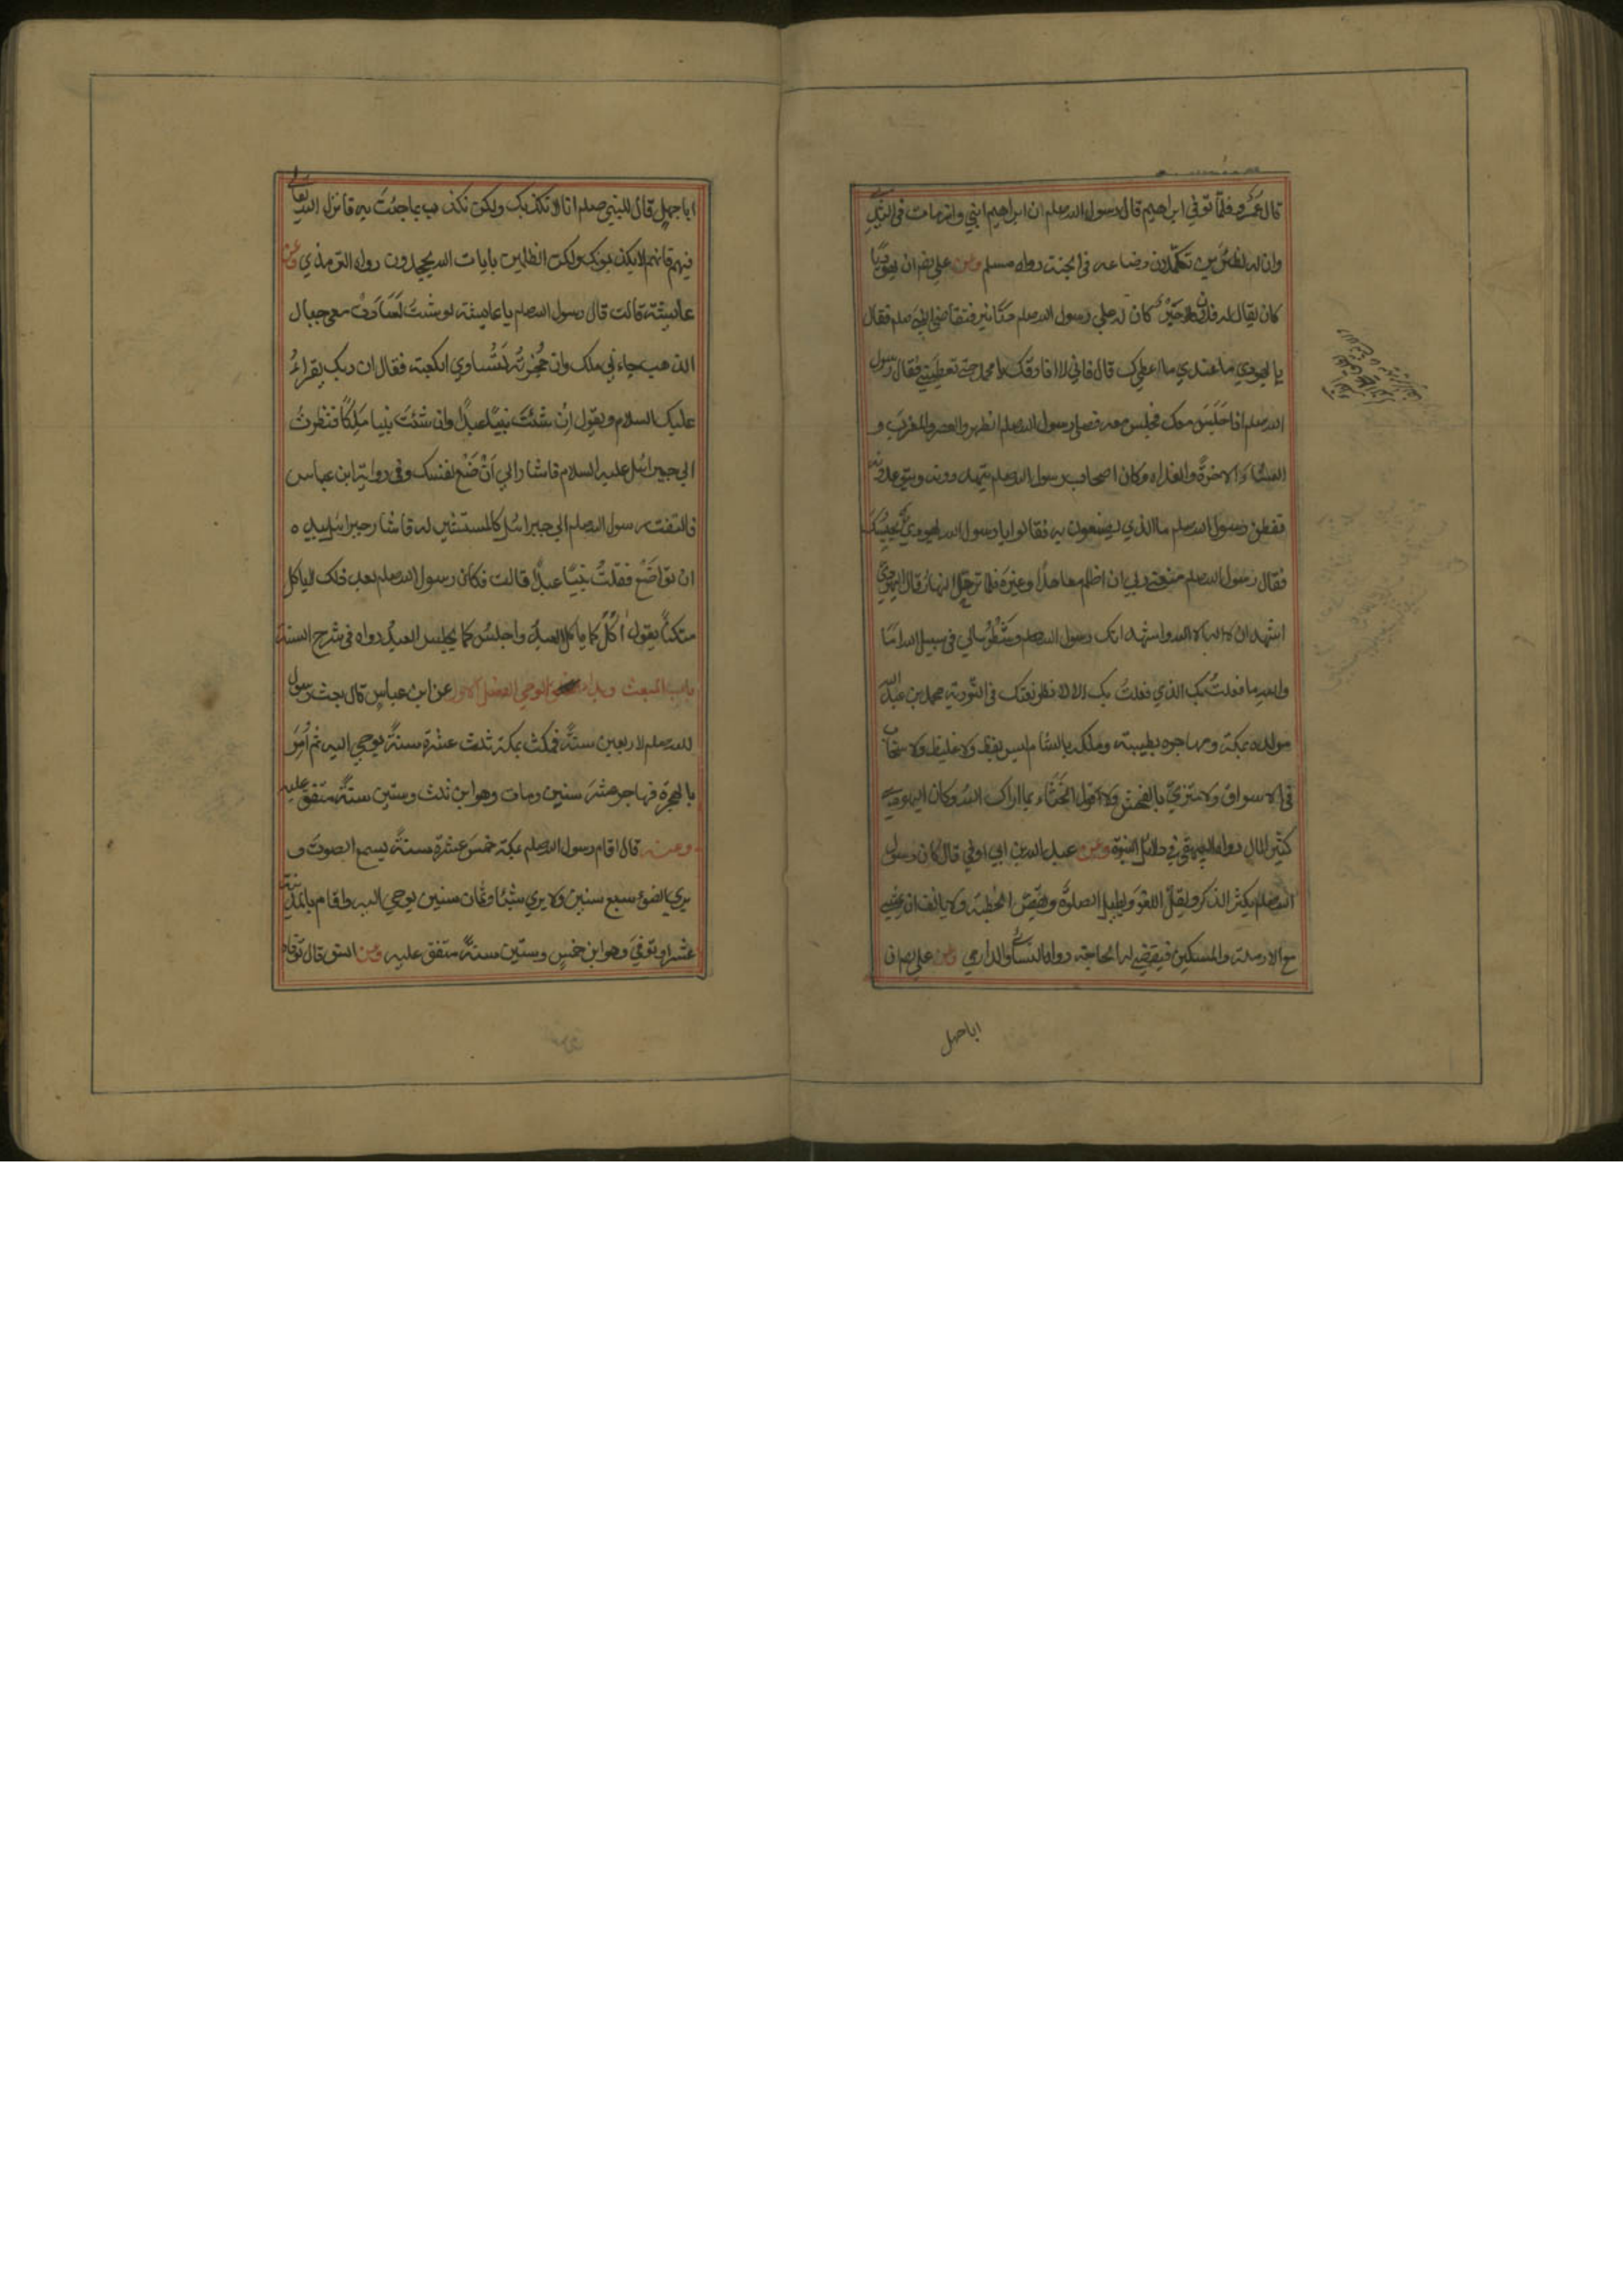 قال عمرو فلما توفي ابراهيم قال رسول الله صلعم ان ابراهيم ابني وانه مات في الثدي
وان له لظئرين تكملان رضاعه في الجنة رواه مسلم وعن علي رض ان يهوديا
كان يقال له فلان حبر كان له علي رسول الله صلعم دنانير فتقاضي النبي صلعم فقال
يا يهودي ما عندي ما اعطيك قال فاني لا افارقك يا محمد حتي تعطيني فقال رسول
الله صلعم اذا اجلس معك فجلس معه فصلي رسول الله صلعم الظهر والعصر والمغرب و
العشاء الاخرة والغداة وكان اصحاب رسول الله صلعم يتهددونه ويتوعدونه
ففطن رسول الله صلعم ما الذي يصنعون به فقالوا يا رسول الله يهودي يحبسك
فقال رسول الله صلعم منعني ربي ان اظلم معاهدا وغيره فلما ترجل النهار قال اليهودي
اشهد ان لا اله الا الله واشهد انك رسول الله صلعم وشطر مالي في سبيل الله اما
والله ما فعلت بك الذي فعلت بك الا لانظر نعتك في التورية محمد بن عبد الله
مولده بمكة ومهاجره بطيبة وملكه بالشام ليس بفظ ولا غليظ ولا سخاب
في الاسواق ولا متزي بالفحش ولا قول الخناء بما اراك الله وكان اليهودي
كثير المال رواه البيهقي في دلائل النبوة وعن عبد الله بن ابي اوفي قال كان رسول
الله صلعم يكثر الذكر ويقل اللغو ويطيل الصلوة ويقصر الخطبة ولا يانف ان يمشي
مع الارملة والمسكين فيقضي له الحاجة رواه النسائي والدارمي وعن علي رض ان
اباجهل
اباجهل قال للنبي صلعم انا لا نكذبك ولكن نكذب بما جئت به فانزل الله تعالي
فيهم فانهم لا يكذبونك ولكن الظلمين بايات الله يجحدون رواه الترمذي وعن
عائشة قالت قال رسول الله صلعم يا عايشة لو شئت لسارت معي جبال
الذهب جاءني ملك وان حجزته لتساوي الكعبة فقال ان ربك يقراء
عليك السلام ويقول ان شئت نبيا عبدا وان شئت نبيا ملكا فنظرت
الي جبرائيل عليه السلام فاشار الي ان ضع نفسك وفي رواية ابن عباس
فالتفت رسول الله صلعم الي جبرائيل كالمستشير له فاشار جبرائيل بيده
ان تواضع فقلت نبيا عبدا قالت فكان رسول الله صلعم بعد ذلك لا ياكل
متكئا يقول اكل كما ياكل العبد واجلس كما يجلس العبد رواه في شرح السنة
باب المبعث وبدا الوحي الفصل الاول عن ابن عباس قال بعث رسول
الله صلعم لاربعين سنة فمكث بمكة ثلث عشرة سنة يوحي اليه ثم امر
بالهجرة فهاجر عشر سنين ومات وهو ابن ثلث وستين سنة متفق عليه
وعنه قال اقام رسول الله صلعم بمكة خمس عشرة سنة يسمع الصوت و
يري الضوء سبع سنين ولا يري شيئا وثمان سنين يوحي اليه واقام بالمدينة
عشرا وتوفي وهو ابن خمس وستين سنة متفق عليه وعن انس قال توفاه